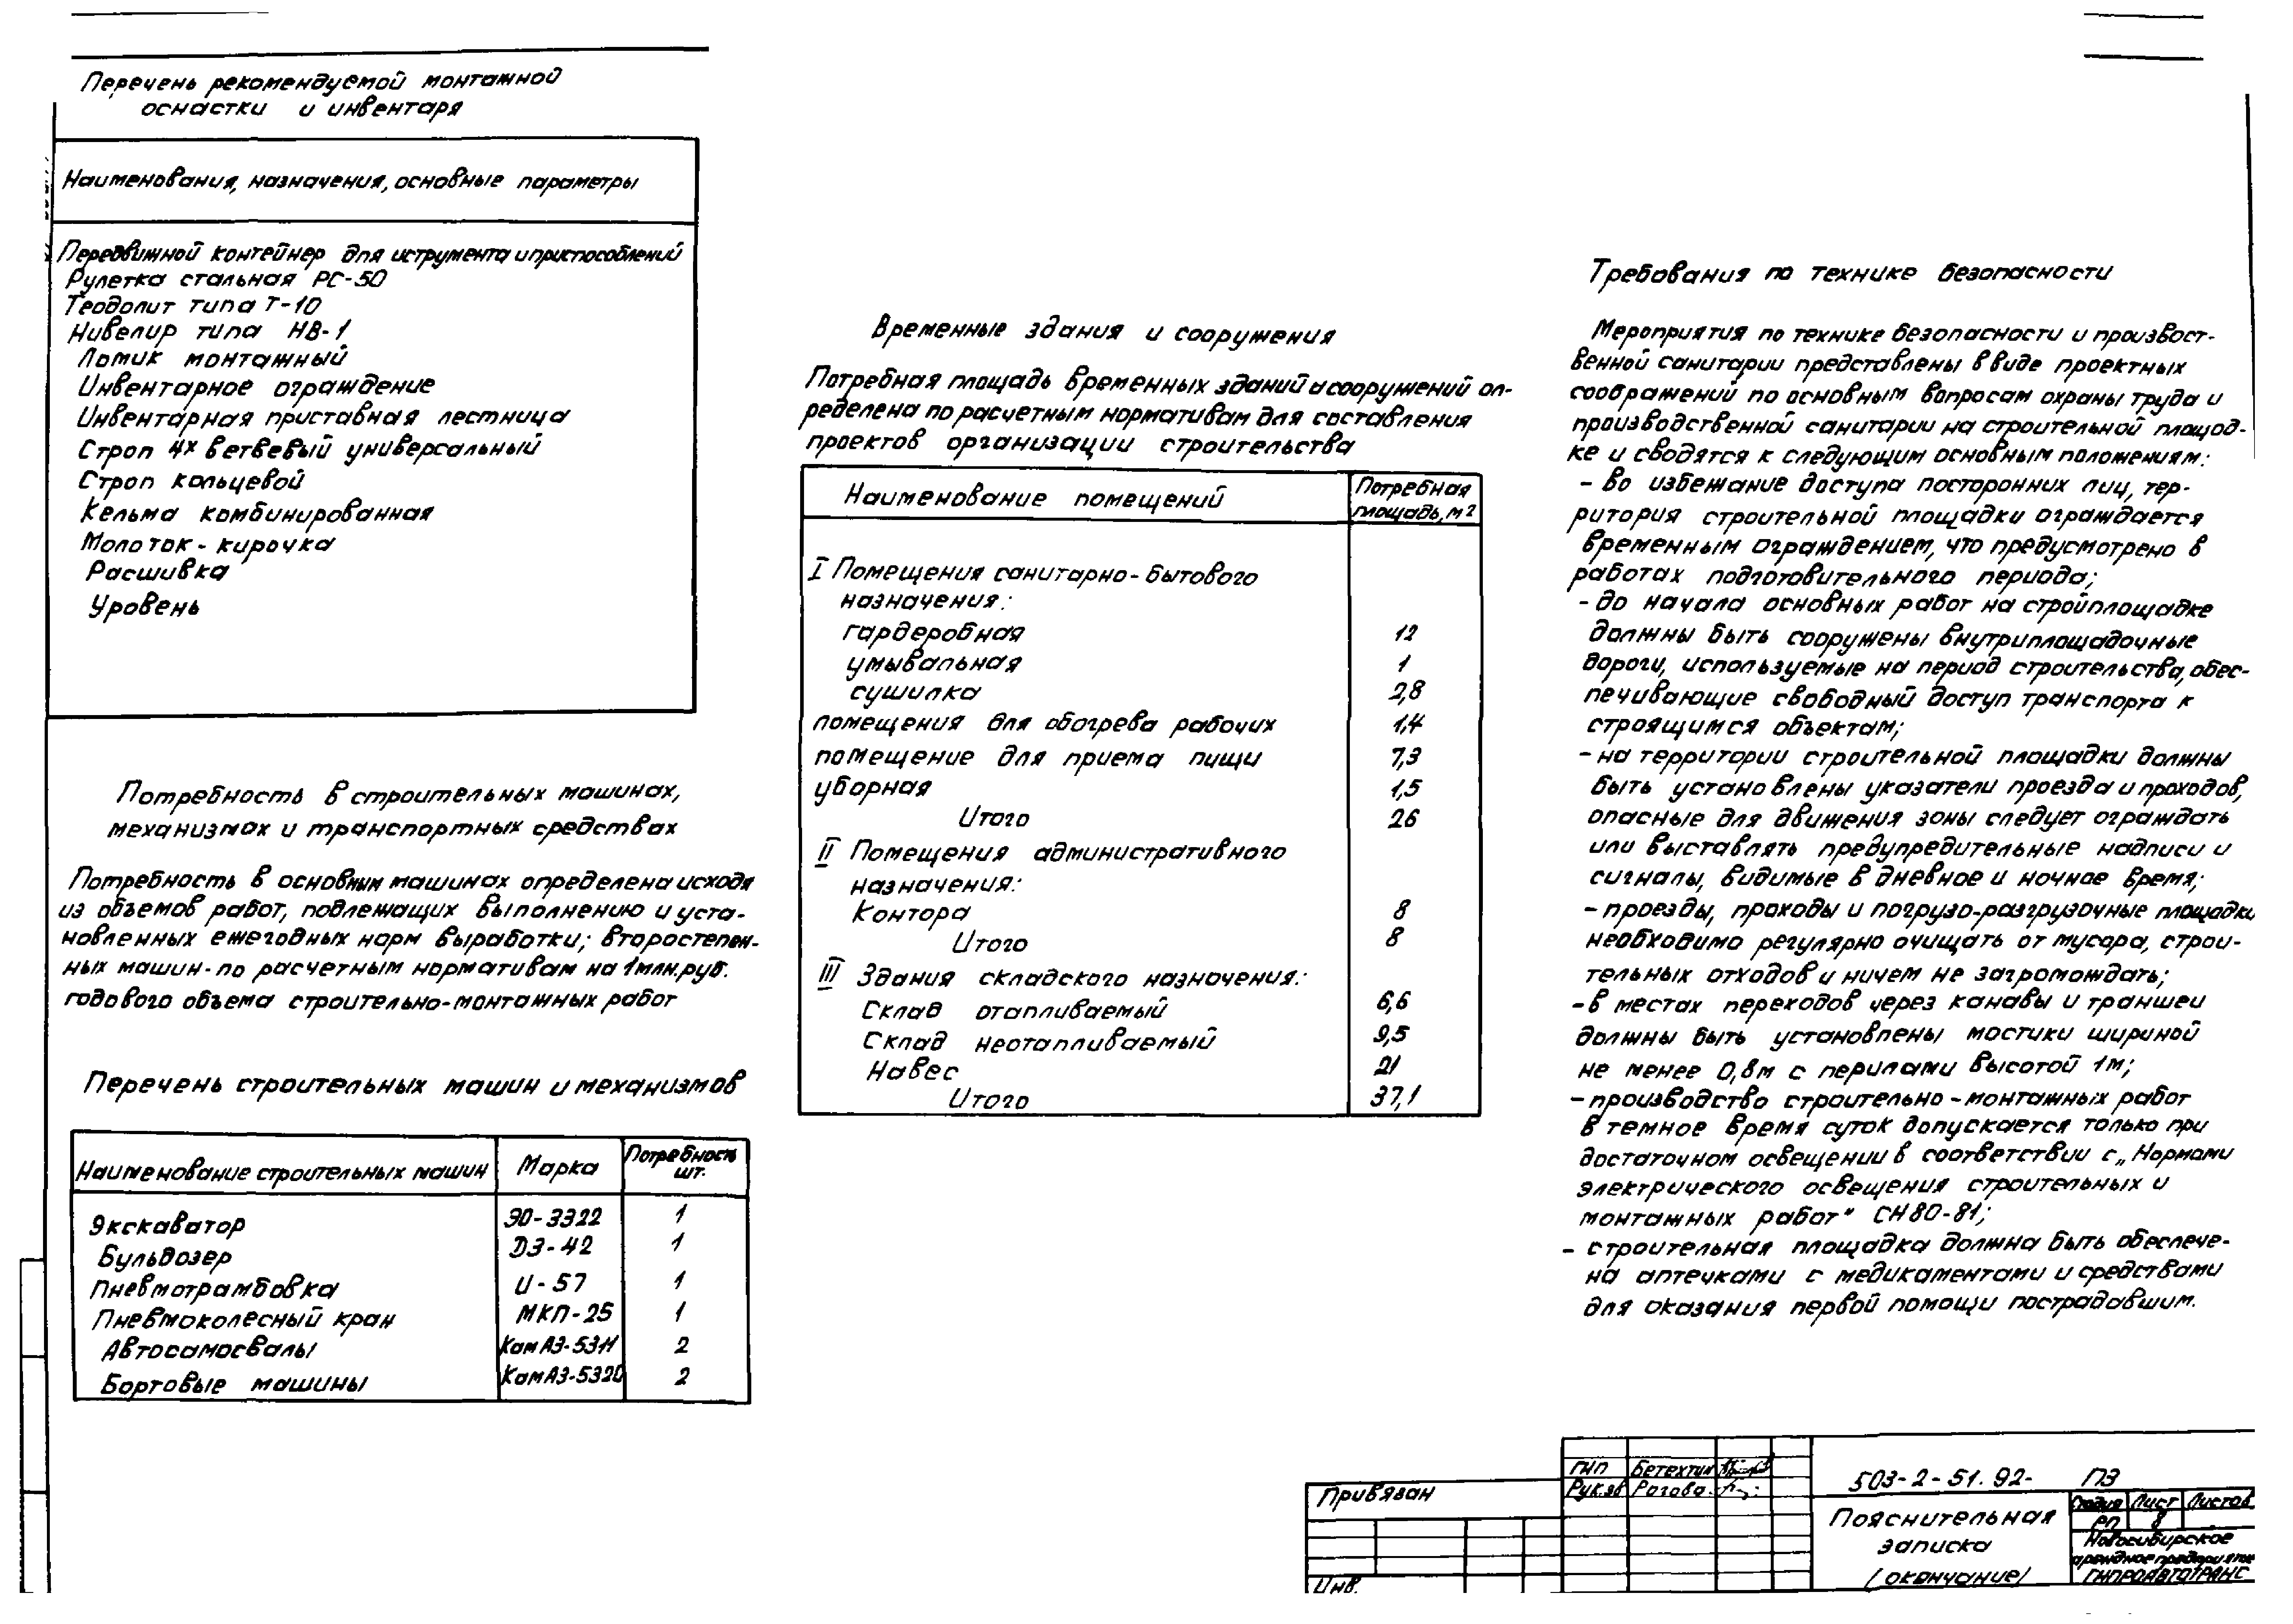 Перечень рекомендуемой монтажной
оснастки и инвентаря
Наименования, назначения, основные параметры
Передвижной контейнер для иструмента и приспособлений
Рулетка стальная РС-50
Теодолит типа Т-10
Нивелир типа НВ-1
Ломик монтажный
Инвентарное ограждение
Инвентарная приставная лестница
Строп 4х ветвевый универсальный
Строп кольцевой
Кельма комбинированная
Молоток-кирочка
Расшивка
Уровень
Потребность в строительных машинах,
механизмах и транспортных средствах
Потребность в основным машинах определена исходя
из объемов работ, подлежащих выполнению и уста-
новленных ежегодных норм выработки; второстепен-
ных машин-по расчетным нормативам на 1млн.руб.
годового объема строительно-монтажных работ
Перечень строительных машин и механизмов
Наименование строительных машин Марка Потребность
шт.
Экскаватор ЭО-3322 1
Бульдозер ДЗ-42 1
Пневмотрамбовка И-57 1
Пневмоколесный кран МКП-25 1
Автосамосвалы КамАЗ-5311 2
Бортовые машины КамАЗ-5320 2
Временные здания и сооружения
Потребная площадь временных зданий и сооружений оп-
ределена по расчетным нормативам для составления
проектов организации строительства
Наименование помещений Потребная
площадь, м2
I Помещения санитарно-бытового
назначения:
гардеробная 12
умывальная 1
сушилка 2,8
помещения для обогрева рабочих 1,4
помещение для приема пищи 7,3
уборная 1,5
Итого 26
II Помещения административного
назначения:
Контора 8
Итого 8
III Здания складского назначения:
Склад отапливаемый 6,6
Склад неотапливаемый 9,5
Навес 21
Итого 37,1
Требования по технике безопасности
Мероприятия по технике безопасности и произвост-
венной санитарии представлены в виде проектных
соображений по основным вопросам охраны труда и
производственной санитарии на строительной площад-
ке и сводятся к следующим основным положениям:
- во избежание доступа посторонних лиц, тер-
ритория строительной площадки ограждается
временным ограждением, что предусмотрено в
работах подготовительного периода;
- до начала основных работ на стройплощадке
должны быть сооружены внутриплощадочные
дороги, используемые на период строительства, обес-
печивающие свободный доступ транспорта к
строящимся объектам;
- на территории строительной площадки должны
быть установлены указатели проезда и проходов,
опасные для движения зоны следует ограждать
или выставлять предупредительные надписи и
сигналы, видимые в дневное и ночное время;
- проезды, проходы и погрузо-разгрузочные площадки
необходимо регулярно очищать от мусора, строи-
тельных отходов и ничем не загромождать;
- в местах переходов через канавы и траншеи
должны быть установлены мостики шириной
не менее 0,8м с перилами высотой 1м;
- производство строительно-монтажных работ
в темное время суток допускается только при
достаточном освещении в соответствии с „Нормами
электрического освещения строительных и
монтажных работ" СН80-81;
- строительная площадка должна быть обеспече-
на аптечками с медикаментами и средствами
для оказания первой помощи пострадавшим.
Привязан
Инв.
ГИП Бетехтин
Рук.зв Рогова
503-2-51.92- ПЗ
Пояснительная
записка
/окончание/
Стадия Лист Листов
РП 8
Новосибирское
арендное предприятие
ГИПРОАВТОТРАНС